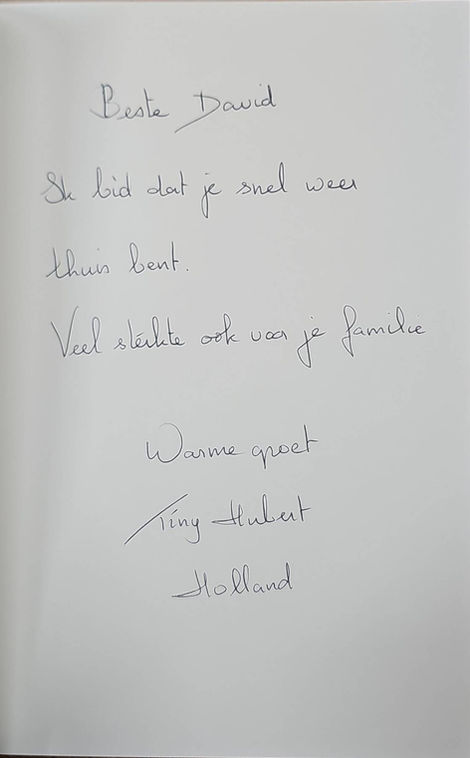 Beste David
Ik bid dat je snel weer
thuis bent.
Veel sterkte ook voor je familie
Warme groet
Tiny Hubert
Holland